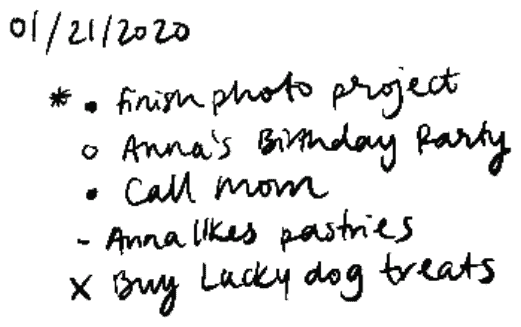 01/21/2020
* • finish photo project
o Anna's Birthday Party
• Call mom
- Anna likes pastries
x Buy Lucky dog treats